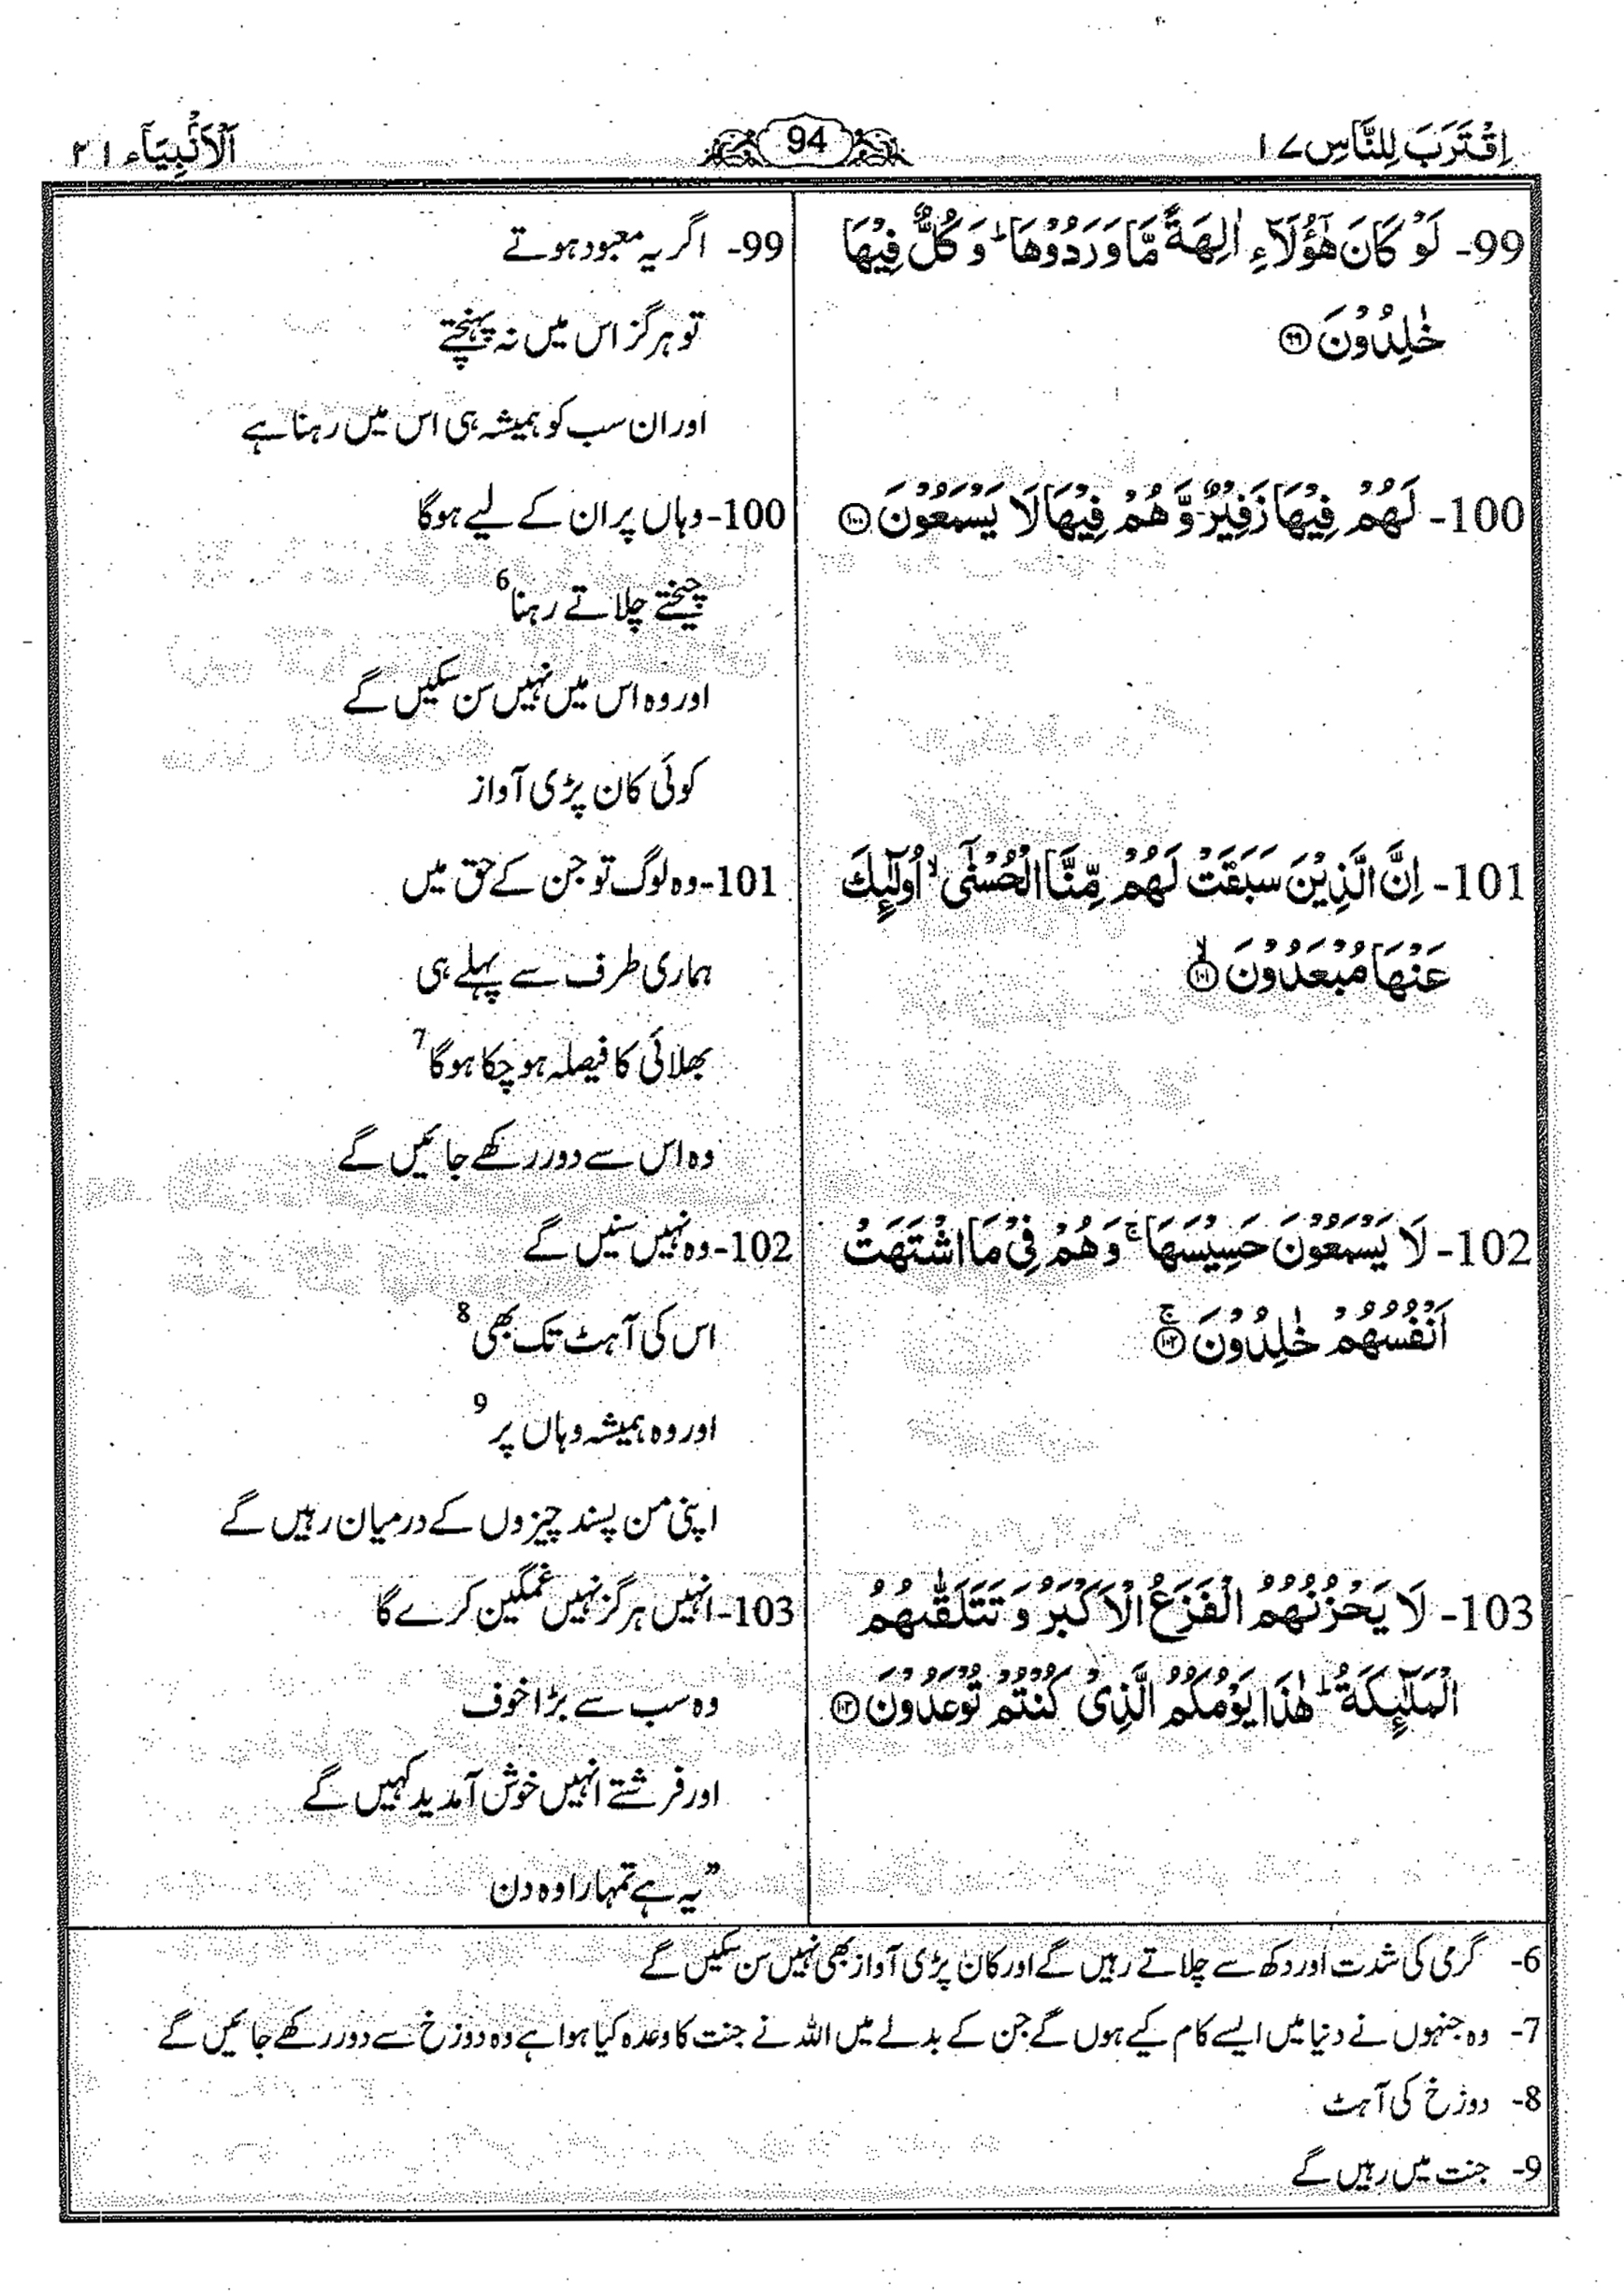 اِقْتَرَبَ لِلنَّاسِ ۱۷
94
اَلْاَنْۢبِيَآء ۲۱
99- لَوْ كَانَ هٰٓؤُلَآءِ اٰلِهَةً مَّا وَرَدُوْهَا ؕ وَ كُلٌّ فِيْهَا
خٰلِدُوْنَ ﴿۹۹﴾
100- لَهُمْ فِيْهَا زَفِيْرٌ وَّ هُمْ فِيْهَا لَا يَسْمَعُوْنَ ﴿۱۰۰﴾
101- اِنَّ الَّذِيْنَ سَبَقَتْ لَهُمْ مِّنَّا الْحُسْنٰۤى ۙ اُولٰٓئِكَ
عَنْهَا مُبْعَدُوْنَ ﴿۱۰۱﴾ ۙ
102- لَا يَسْمَعُوْنَ حَسِيْسَهَا ۚ وَ هُمْ فِيْ مَا اشْتَهَتْ
اَنْفُسُهُمْ خٰلِدُوْنَ ﴿۱۰۲﴾ ۚ
103- لَا يَحْزُنُهُمُ الْفَزَعُ الْاَكْبَرُ وَ تَتَلَقّٰىهُمُ
الْمَلٰٓئِكَةُ ؕ هٰذَا يَوْمُكُمُ الَّذِيْ كُنْتُمْ تُوْعَدُوْنَ ﴿۱۰۳﴾
99- اگر یہ معبود ہوتے
تو ہرگز اس میں نہ پہنچتے
اور ان سب کو ہمیشہ ہی اس میں رہنا ہے
100- وہاں پر ان کے لیے ہوگا
چیختے چلاتے رہنا 6
اور وہ اس میں نہیں سن سکیں گے
کوئی کان پڑی آواز
101- وہ لوگ تو جن کے حق میں
ہماری طرف سے پہلے ہی
بھلائی کا فیصلہ ہو چکا ہوگا 7
وہ اس سے دور رکھے جائیں گے
102- وہ نہیں سنیں گے
اس کی آہٹ تک بھی 8
اور وہ ہمیشہ وہاں پر 9
اپنی من پسند چیزوں کے درمیان رہیں گے
103- انہیں ہرگز نہیں غمگین کرے گا
وہ سب سے بڑا خوف
اور فرشتے انہیں خوش آمدید کہیں گے
”یہ ہے تمہارا وہ دن
6- گرمی کی شدت اور دکھ سے چلاتے رہیں گے اور کان پڑی آواز بھی نہیں سن سکیں گے
7- وہ جنہوں نے دنیا میں ایسے کام کیے ہوں گے جن کے بدلے میں اللہ نے جنت کا وعدہ کیا ہوا ہے وہ دوزخ سے دور رکھے جائیں گے
8- دوزخ کی آہٹ
9- جنت میں رہیں گے